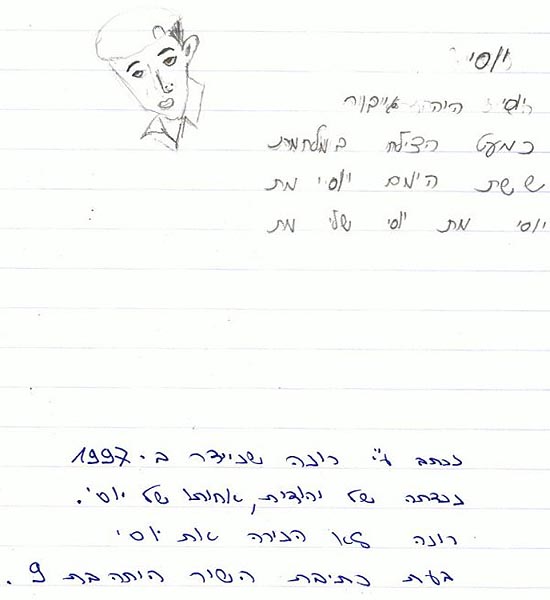 יוסי
יוסי היה גיבור
כמעט הצילח במלחמת
ששת הימם יוסי מת
יוסי מת יוסי שלי מת
נכתב ע"י רונה שניידר ב-1997
נכדתה של יהודית, אחותו של יוסי.
רונה לא הכירה את יוסי
בעת כתיבת השיר היתה בת 9.